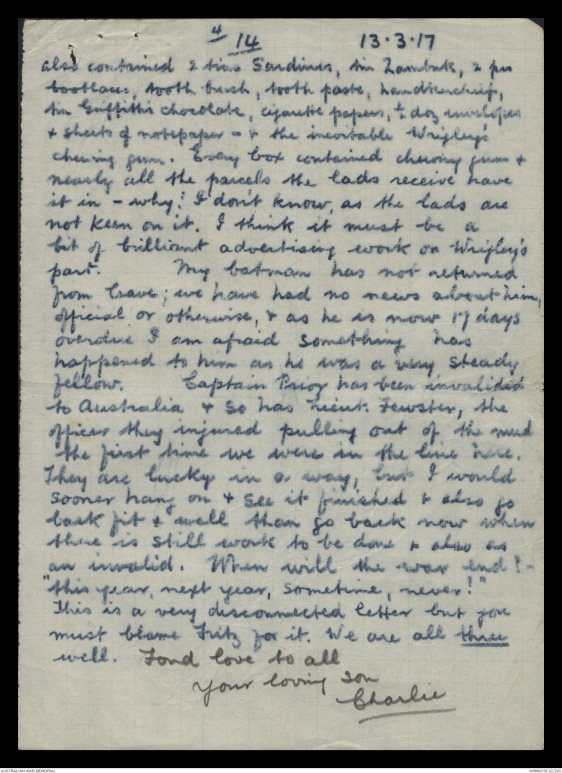 4
14 13.3.17
also contained 2 tins Sardines, tin Zambuk, 2 prs
bootlaces, tooth brush, tooth paste, handkerchief,
tin Griffiths chocolate, cigarette papers, ½ doz envelopes
& sheets of notepaper - & the inevitable Wrigley's
chewing gum. Every box contained chewing gum &
nearly all the parcels the lads receive have
it in - why? I don't know, as the lads are
not keen on it. I think it must be a
bit of brilliant advertising work on Wrigley's
part. My batman has not returned
from leave; we have had no news about him,
official or otherwise, & as he is now 17 days
overdue I am afraid something has
happened to him as he was a very steady
fellow. Captain Prior has been invalided
to Australia & so has Lieut. Fewster, the
officer they injured pulling out of the mud
the first time we were in the line here.
They are lucky in a way, but I would
sooner hang on & see it finished & also go
back fit & well than go back now when
there is still work to be done & also as
an invalid. When will the war end? -
"this year, next year, sometime, never!"
This is a very disconnected letter but you
must blame Fritz for it. We are all three
well. Fond love to all
Your loving son
Charlie
AUSTRALIAN WAR MEMORIAL